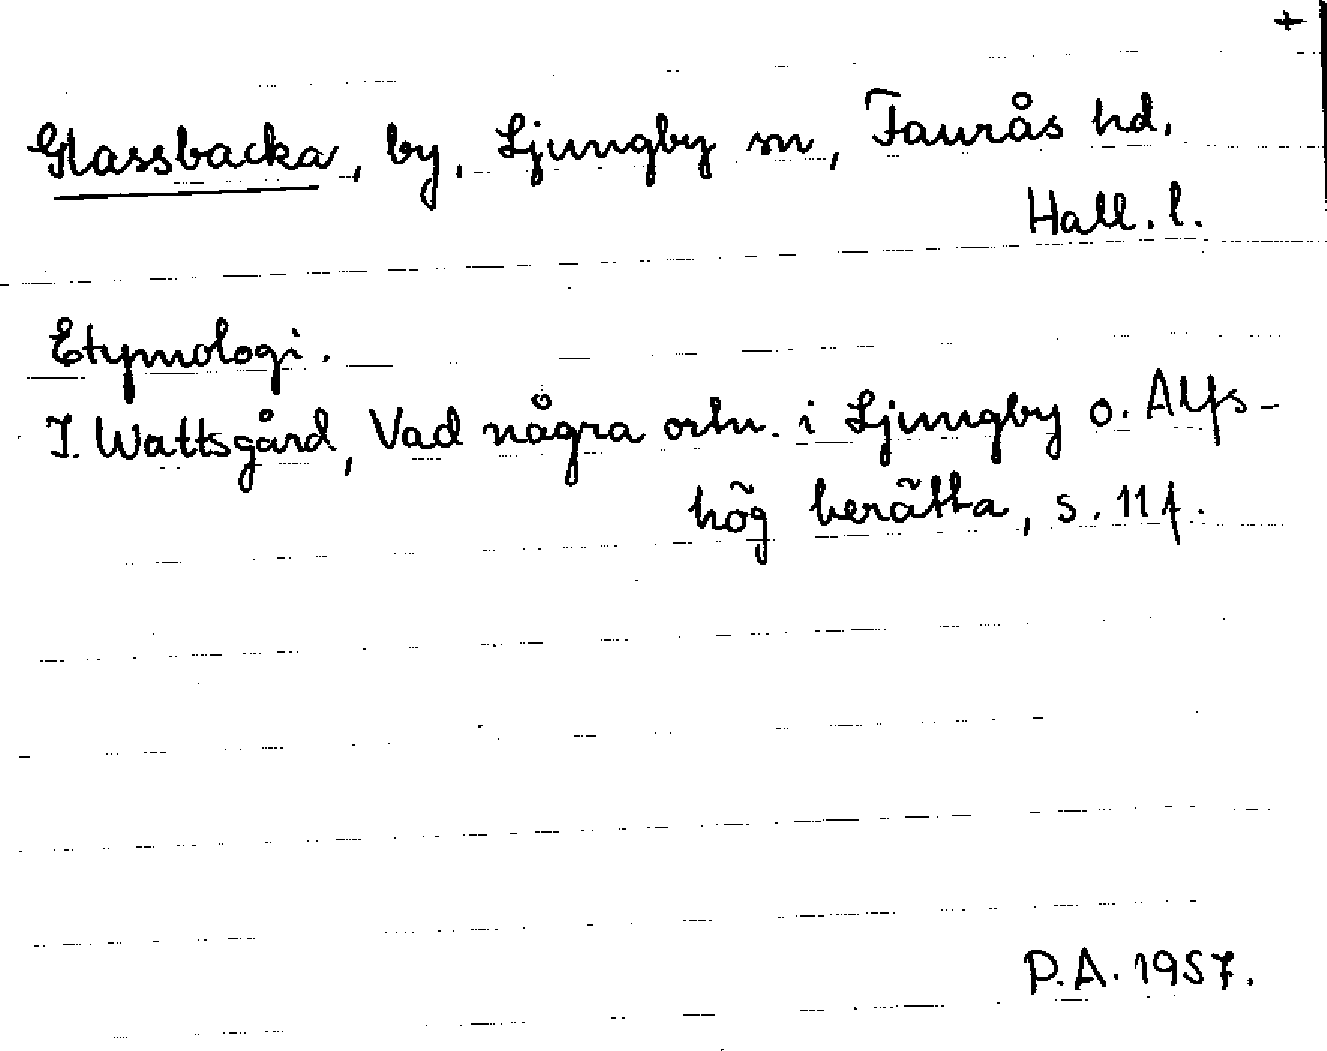 +
Glassbacka, by, Ljungby sn, Faurås hd.
Hall. l.
Etymologi.
I. Wattsgård, Vad några ortn. i Ljungby o. Alfs-
hög berätta, s. 11 f.
P.A. 1957.